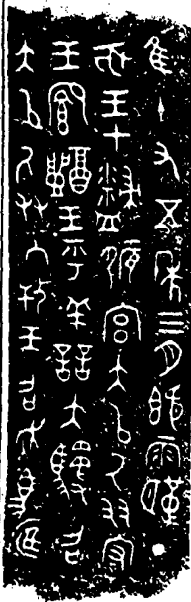 隹十又五年三月既霸丁
亥王才𥎦侲宮大以氒友守
王鄉醴王乎善夫騣召
大以氒友入攼王召走馬雁